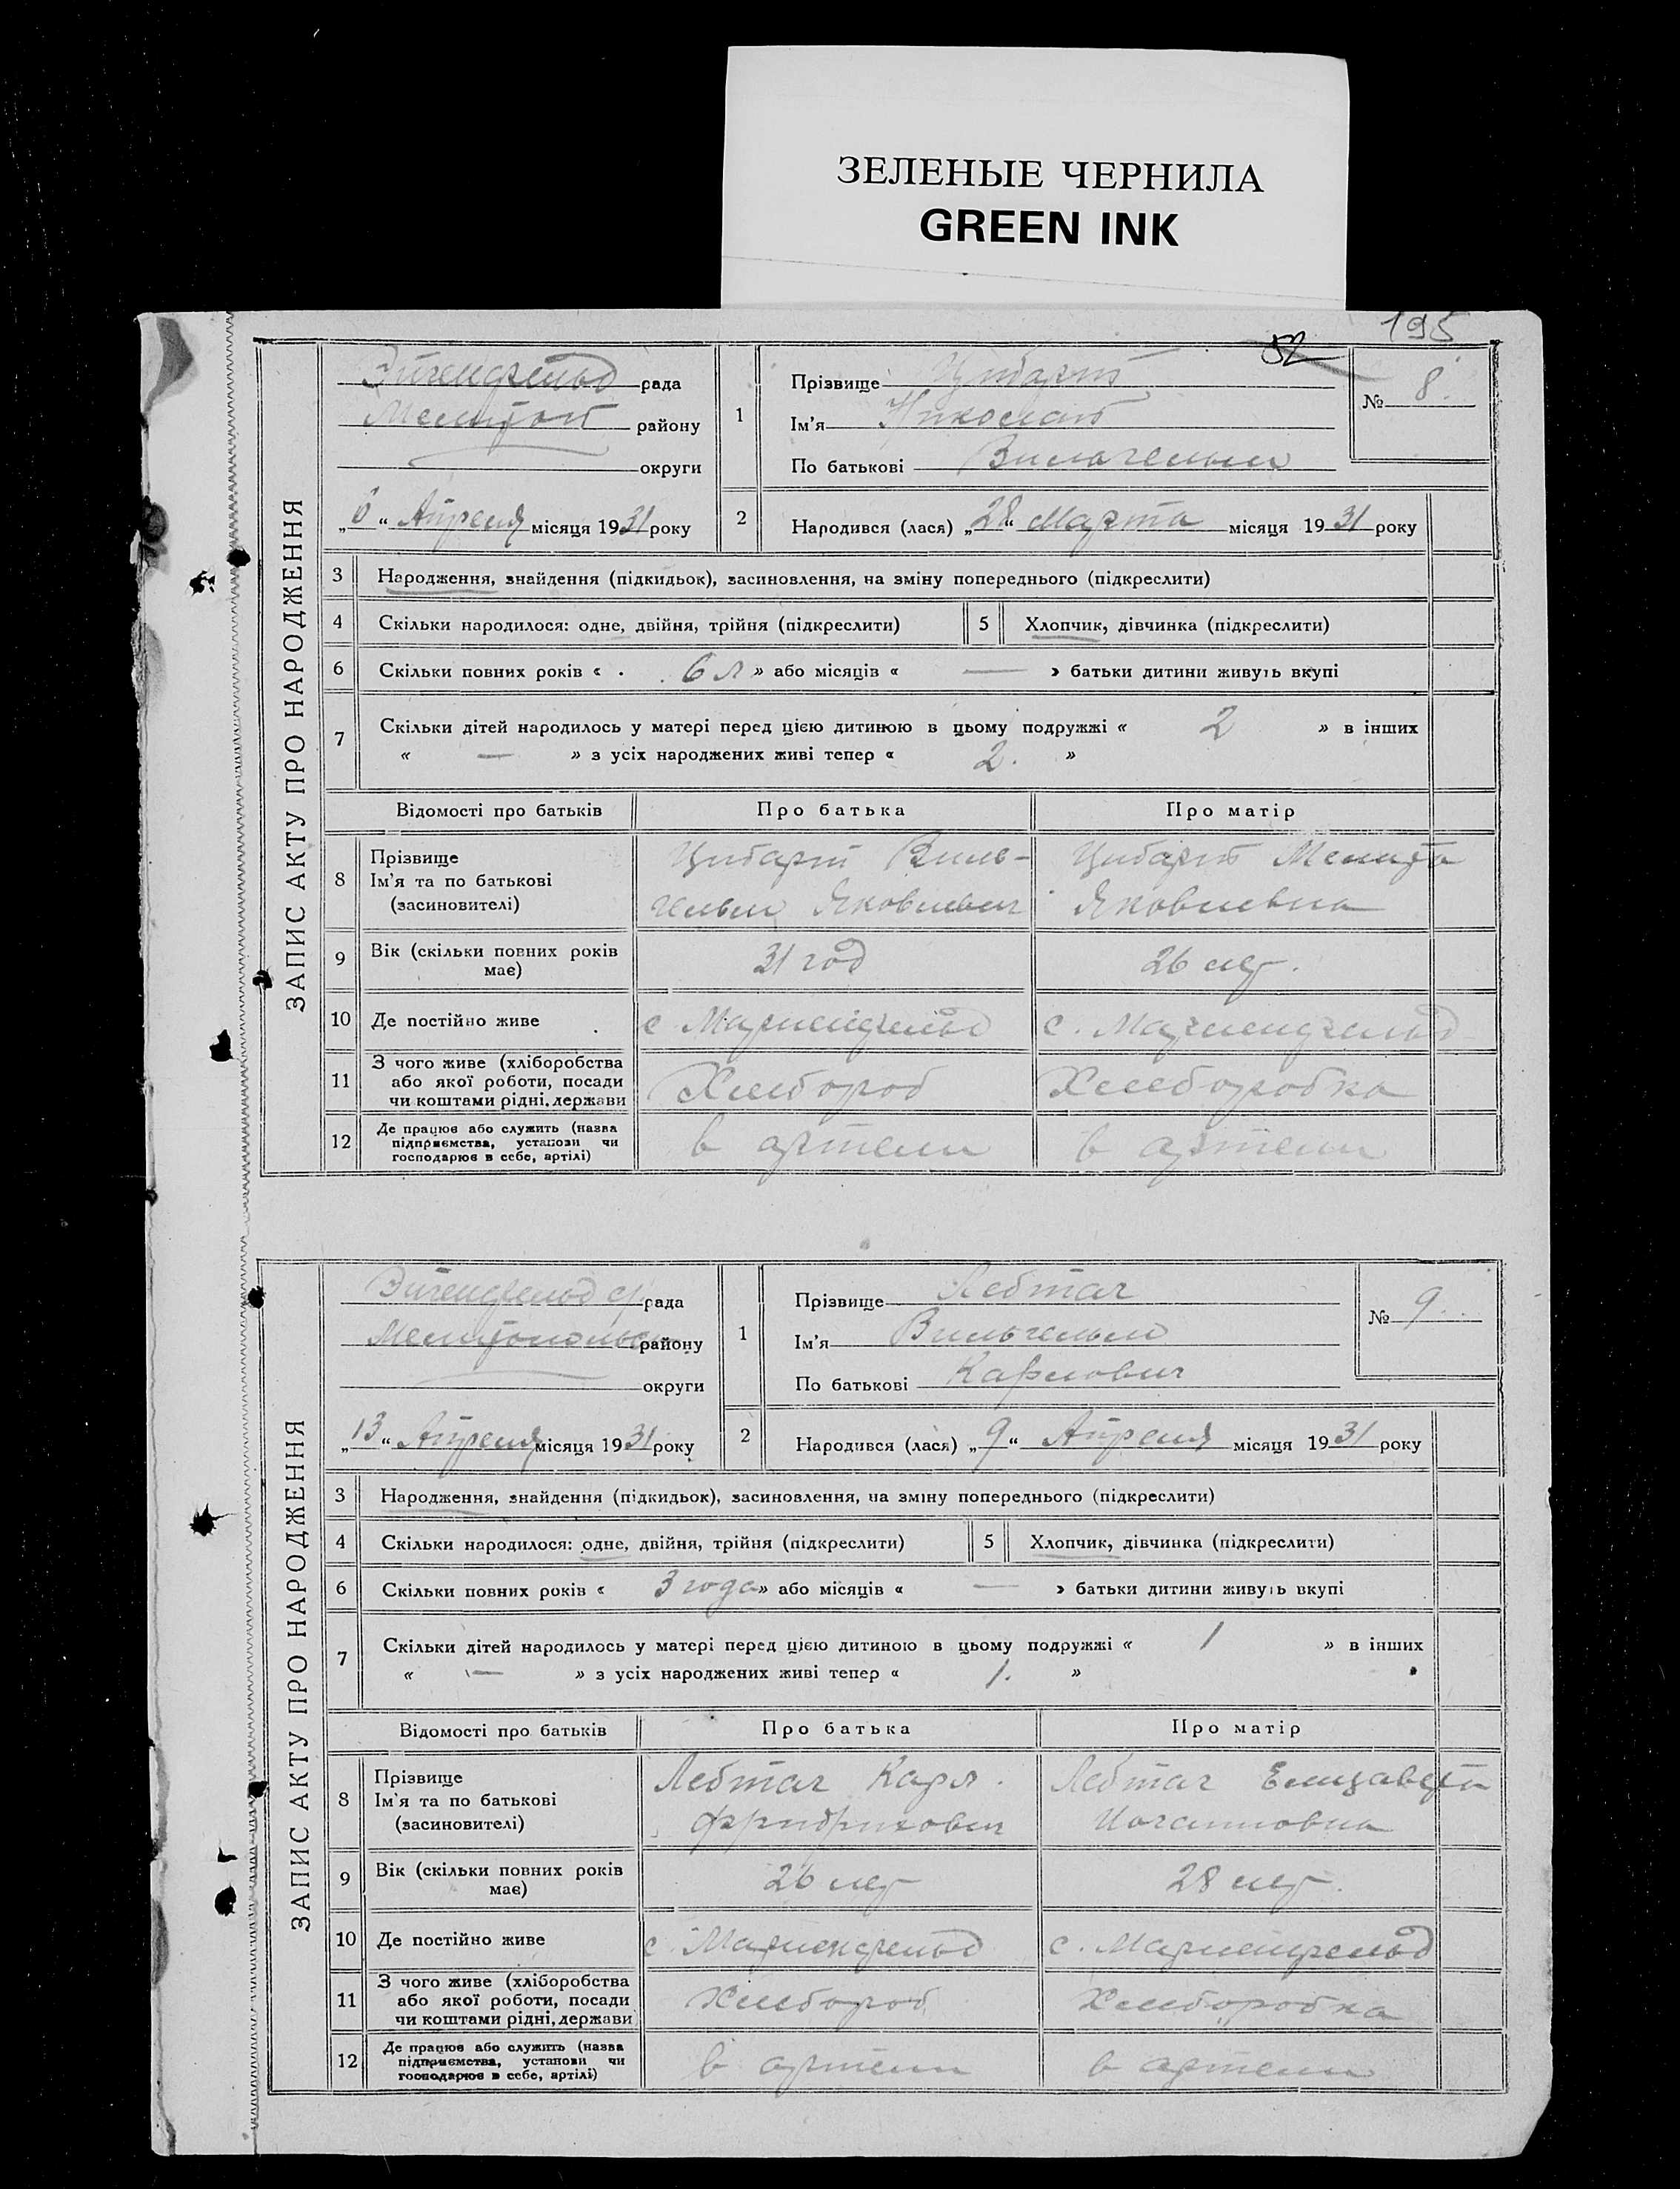 ЗЕЛЕНЫЕ ЧЕРНИЛА
GREEN INK
195
52
ЗАПИС АКТУ ПРО НАРОДЖЕННЯ
Эйгенфельд рада
Мелитоп району
округи
„6“ Апреля місяця 1931 року
1 Прізвище Цибарт
Ім'я Николай
По батькові Вильгельм
№ 8.
2 Народився (лася) „28“ Марта місяця 1931 року
3 Народження, знайдення (підкидьок), засиновлення, на зміну попереднього (підкреслити)
4 Скільки народилося: одне, двійня, трійня (підкреслити) 5 Хлопчик, дівчинка (підкреслити)
6 Скільки повних років « 6 л » або місяців « — » батьки дитини живуть вкупі
7 Скільки дітей народилось у матері перед цією дитиною в цьому подружжі « 2 » в інших
« — » з усіх народжених живі тепер « 2. »
Відомості про батьків Про батька Про матір
8 Прізвище Ім'я та по батькові (засиновителі)
Цибарт Виль-
гельм Яковлевич
Цибарт Мелита
Яковлевна
9 Вік (скільки повних років має) 31 год 26 лет.
10 Де постійно живе с. Мариенфельд с. Мариенфельд
11 З чого живе (хліборобства
або якої роботи, посади
чи коштами рідні, держави Хлебороб Хлеборобка
12 Де працює або служить (назва
підприємства, установи чи
господарює в себе, артілі) в артели в артели
ЗАПИС АКТУ ПРО НАРОДЖЕННЯ
Эйгенфельд с/ рада
Мелитопольск району
округи
„13“ Апреля місяця 1931 року
1 Прізвище Лебтаг
Ім'я Вильгельм
По батькові Карлович
№ 9.
2 Народився (лася) „9“ Апреля місяця 1931 року
3 Народження, знайдення (підкидьок), засиновлення, на зміну попереднього (підкреслити)
4 Скільки народилося: одне, двійня, трійня (підкреслити) 5 Хлопчик, дівчинка (підкреслити)
6 Скільки повних років « 3 года » або місяців « — » батьки дитини живуть вкупі
7 Скільки дітей народилось у матері перед цією дитиною в цьому подружжі « 1 » в інших
« — » з усіх народжених живі тепер « 1. »
Відомості про батьків Про батька Про матір
8 Прізвище Ім'я та по батькові (засиновителі)
Лебтаг Карл
Фридрихович
Лебтаг Елизавета
Иогановна
9 Вік (скільки повних років має) 26 лет 28 лет.
10 Де постійно живе с. Мариенфельд с. Мариенфельд
11 З чого живе (хліборобства
або якої роботи, посади
чи коштами рідні, держави Хлебороб Хлеборобка
12 Де працює або служить (назва
підприємства, установи чи
господарює в себе, артілі) в артели в артели